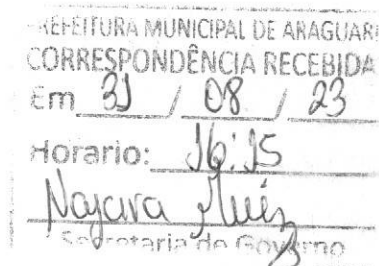 PREFEITURA MUNICIPAL DE ARAGUARI
CORRESPONDÊNCIA RECEBIDA
Em 31 / 08 / 23
Horario: 16:15
Nayara
Secretaria de Governo